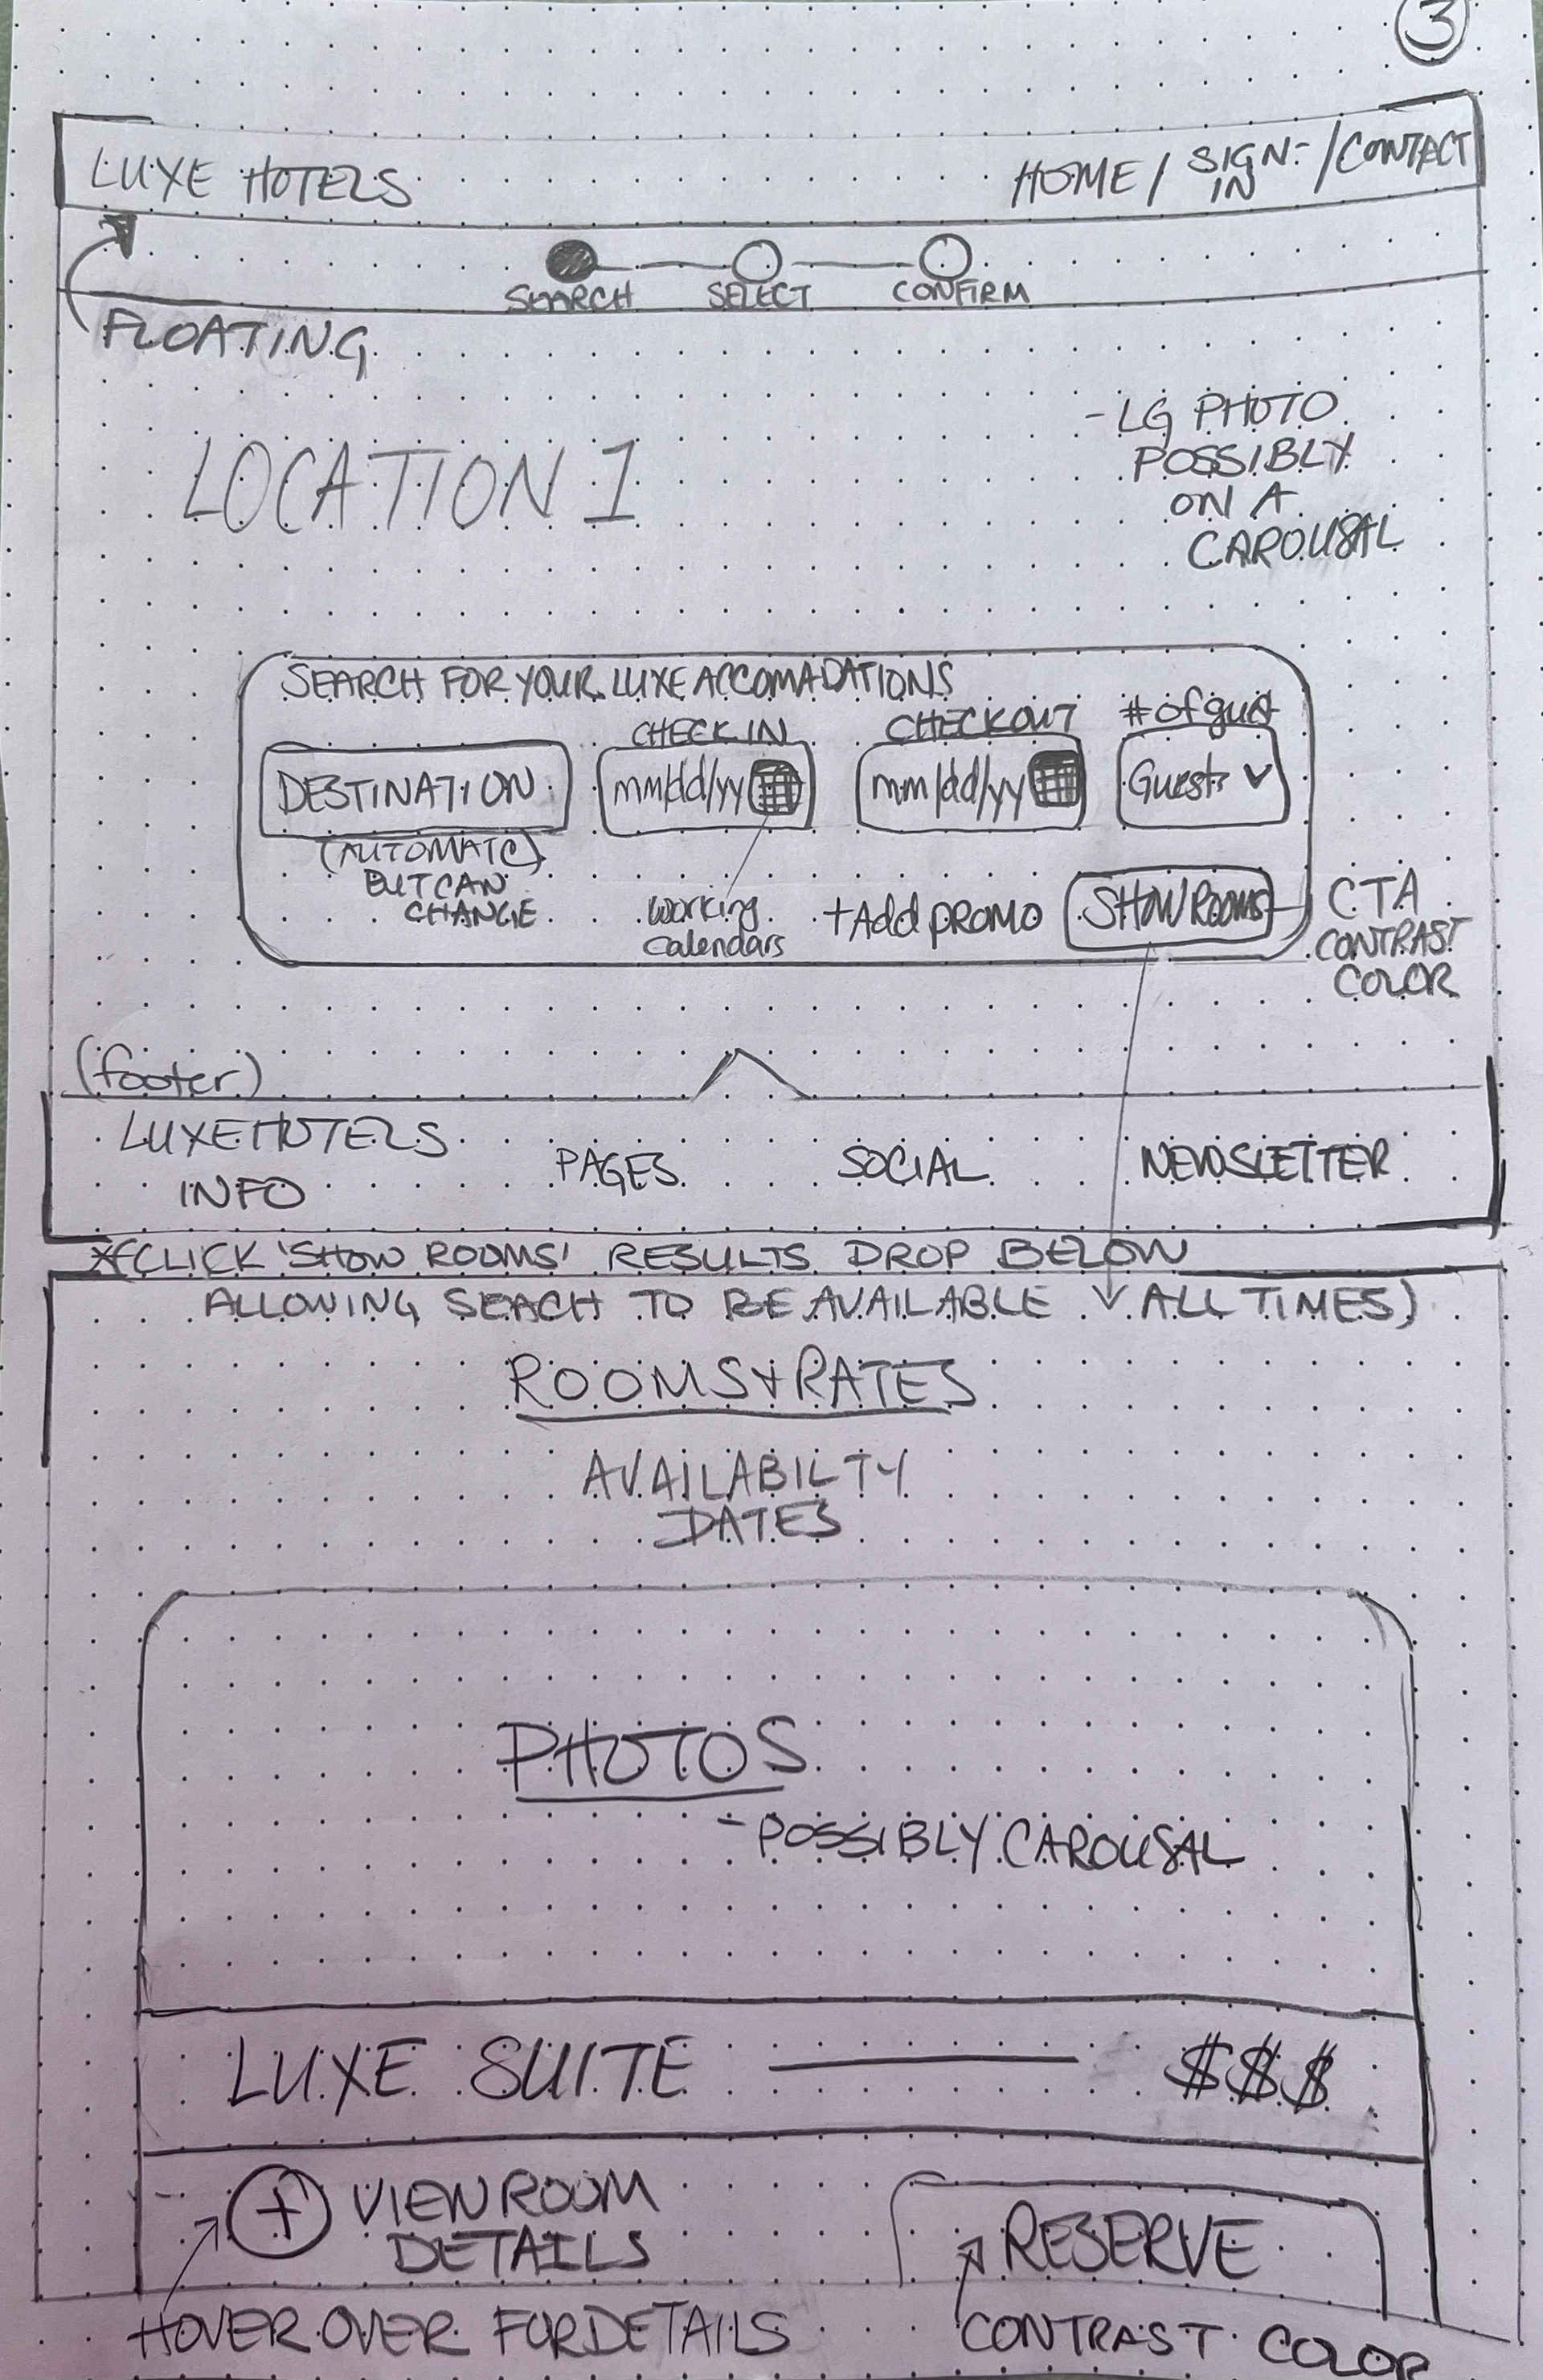 3
LUXE HOTELS
HOME / SIGN-IN / CONTACT
SEARCH
SELECT
CONFIRM
FLOATING
LOCATION 1
- LG PHOTO
POSSIBLY
ON A
CAROUSAL
SEARCH FOR YOUR LUXE ACCOMADATIONS
CHECK IN
CHECKOUT
# of guest
DESTINATION
mm/dd/yy
mm/dd/yy
Guests
(AUTOMATC)
BUT CAN
CHANGE
working
calendars
+Add PROMO
SHOW ROOMS
CTA
CONTRAST
COLOR
(footer)
LUXE HOTELS
INFO
PAGES
SOCIAL
NEWSLETTER
*(CLICK 'SHOW ROOMS' RESULTS DROP BELOW
ALLOWING SEACH TO BE AVAILABLE ALL TIMES)
ROOMS + RATES
AVAILABILTY
DATES
PHOTOS
- POSSIBLY CAROUSAL
LUXE SUITE
$$$
+ VIEW ROOM
DETAILS
RESERVE
HOVER OVER FOR DETAILS
CONTRAST COLOR